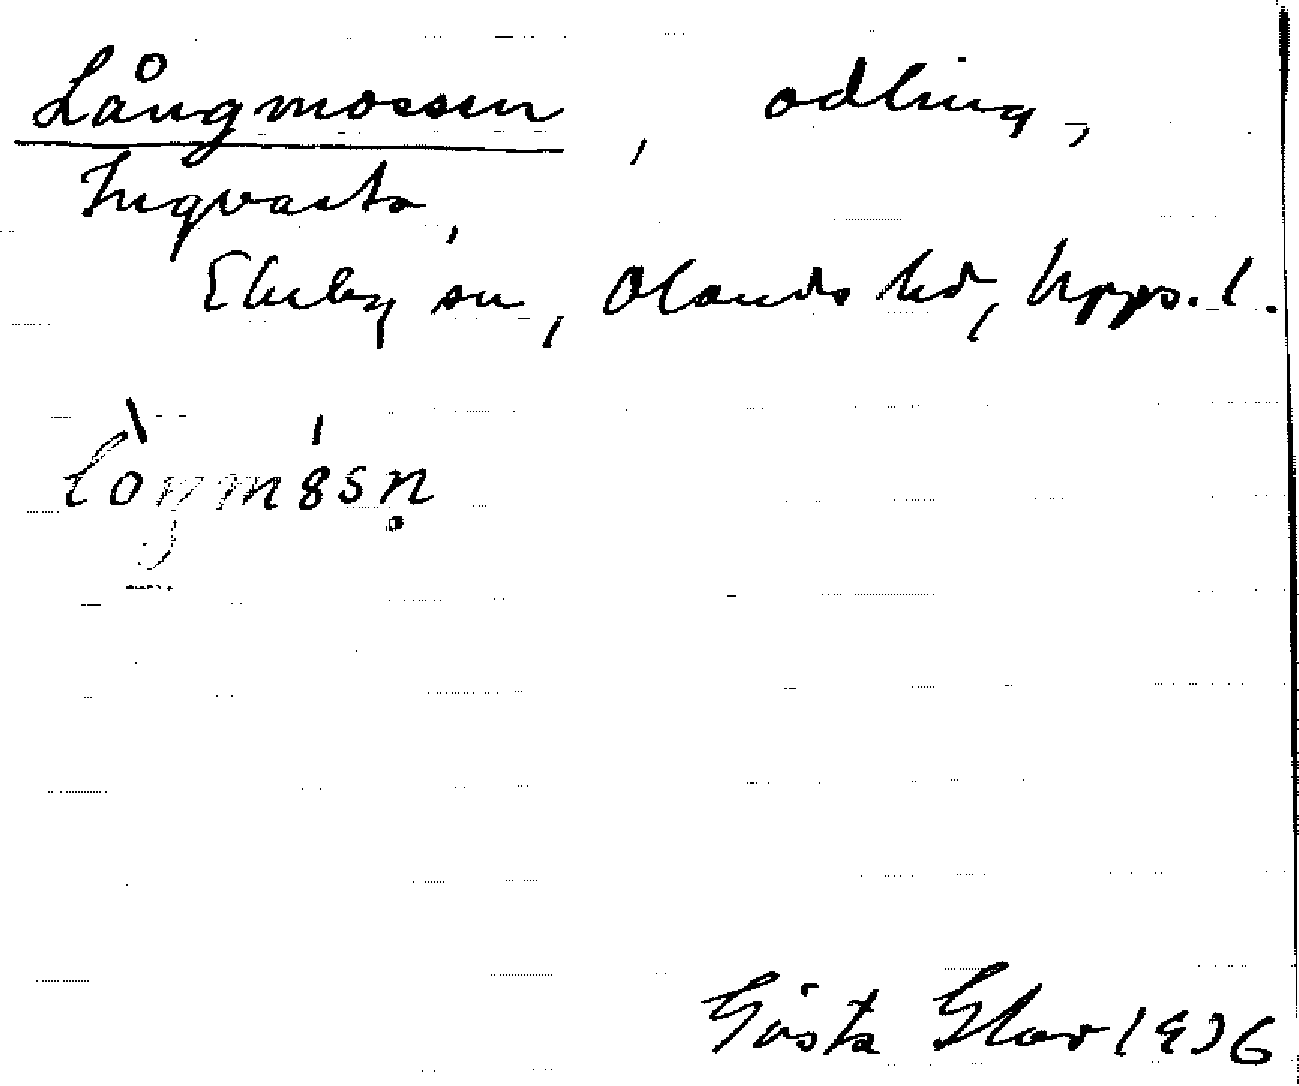 Långmossen, odling,
Ingvasta,
Ekeby sn, Olands hd, Upps. l.
lòŋmȣ́sn̥
Gösta Glav 1936